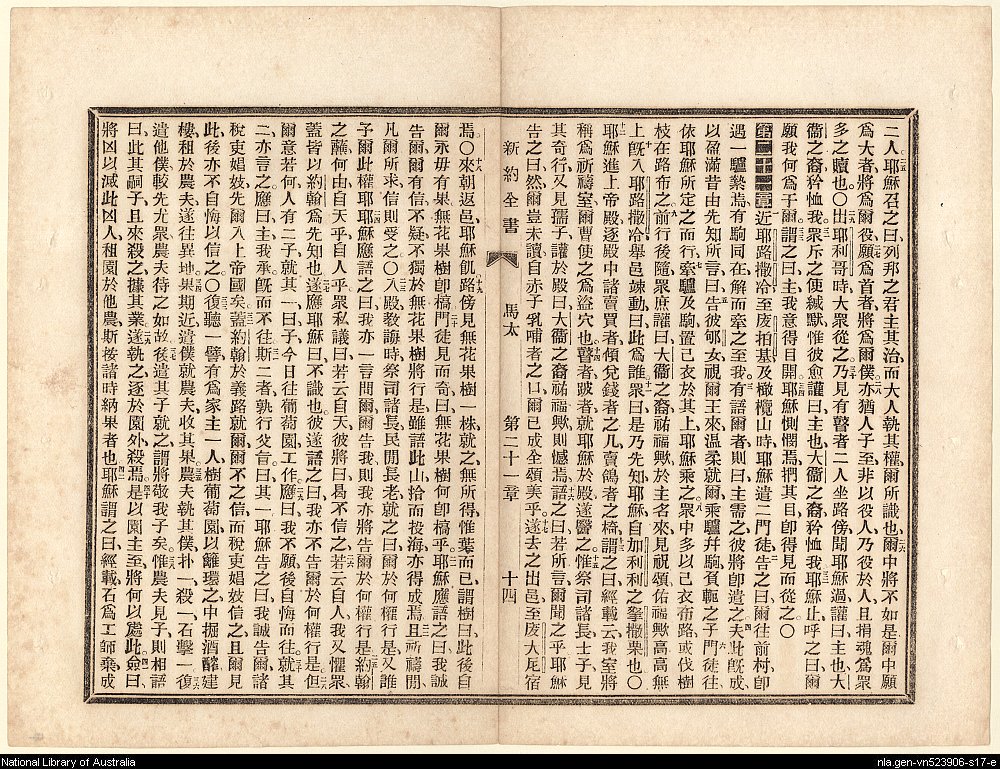 二人耶穌召之曰列邦之君主其治而大人執其權爾所識也爾中將不如是爾中願
爲大者將爲爾役願爲首者將爲爾僕亦猶人子至非以役人乃役於人且捐魂爲衆
多之贖也〇出耶利哥時大衆從之乃見有瞽者二人坐路傍聞耶穌過讙曰主也大
衞之裔矜恤我衆斥之使緘默惟彼愈讙曰主也大衞之裔矜恤我耶穌止呼之曰爾
願我何爲于爾謂之曰主我意得目開耶穌惻憫焉捫其目卽得見而從之〇
第二十一章近耶路撒冷至廄拍基及橄欖山時耶穌遣二門徒告之曰爾往前村卽
遇一驢縶焉有駒同在解而牽之至我有語爾者則曰主需之彼將卽遣之夫此旣成
以盈滿昔由先知所言曰告彼郇女視爾王來溫柔就爾乘驢幷駒負軛之子門徒往
依耶穌所定之而行牽驢及駒置己衣於其上耶穌乘之衆中多以己衣布路或伐樹
枝在路布之前行後隨衆庶讙曰大衞之裔祐福歟於主名來見祝頌佑福歟高高無
上旣入耶路撒冷舉邑竦動曰此爲誰衆曰是乃先知耶穌自加利利之拏撒栗也〇
耶穌進上帝殿逐殿中諸賣買者傾兌錢者之几賣鴿者之椅謂之曰經載云我室將
稱爲祈禱室爾曹使之爲盜穴也瞽者跛者就耶穌於殿遂醫之惟祭司諸長士子見
其奇行又見孺子讙於殿曰大衞之裔祐福歟則憾焉語之曰若所言爾聞之乎耶穌
告之曰然爾豈未讀自赤子乳哺者之口爾已成全頌美乎遂去之出邑至廄大尼宿
新約全書 馬太 第二十一章 十四
焉〇來朝返邑耶穌飢路傍見無花果樹一株就之無所得惟葉而已謂樹曰此後自
爾永毋有果無花果樹卽槁門徒見而奇曰無花果樹何卽槁乎耶穌應語之曰我誠
告爾爾有信不疑不獨於無花果樹將行是雖語此山拾而投海亦得成焉且祈禱間
凡爾所求信則受之〇入殿教誨時祭司諸長民間長老就之曰爾於何權行是又誰
子爾此權耶耶穌應語之曰我亦一言問爾爾告我則我亦將告爾於何權行是約翰
之蘸何由自天乎自人乎眾私議曰若云自天彼將曰曷不信之若云自人我又懼眾
蓋皆以約翰爲先知也遂應耶穌曰不識也彼遂語之曰我亦不告爾於何權行是但
爾意若何人有二子就其一曰子今日往葡萄園工作應曰我不願後自悔而往就其
二亦言之應曰主我承旣而不往斯二者孰行父旨曰其一耶穌告之曰我誠告爾諸
稅吏娼妓先爾入上帝國矣蓋約翰於義路就爾爾不之信而稅吏娼妓信之且爾見
此後亦不自悔以信之〇復聽一譬有爲家主一人樹葡萄園以籬環之中掘酒醡建
樓租於農夫遂往異地果期近遣僕就農夫收其果農夫執其僕扑一殺一石擊一復
遣他僕較先尤衆農夫待之如故後遣其子就之謂將敬我子矣惟農夫見子則相語
曰此其嗣子且來殺之據其業遂執之逐於園外殺焉是以園主至將何以處此僉曰
將凶以滅此凶人租園於他農斯按諸時納果者也耶穌謂之曰經載石爲工師棄成
National Library of Australia
nla.gen-vn523906-s17-e